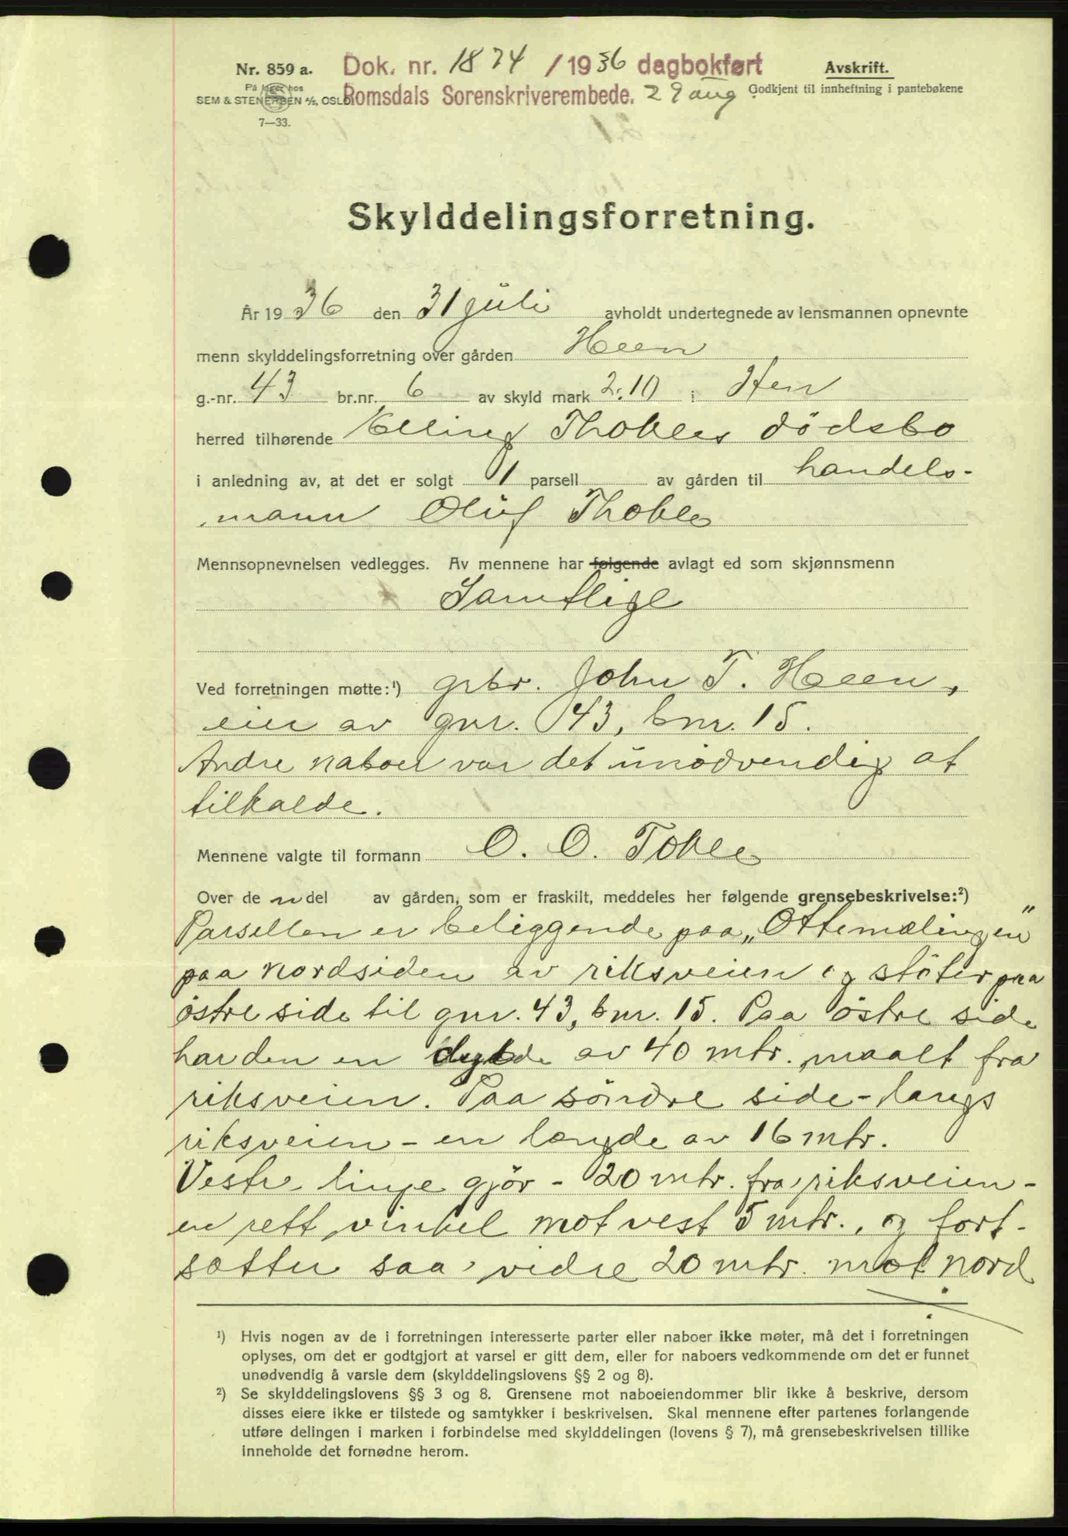 Nr. 859 a. Dok. nr. 1874/1936 dagbokført Avskrift.
På lager hos
SEM & STENERSEN A/S, OSLO Romsdals Sorenskriverembede. 29 aug Godkjent til innheftning i pantebøkene
7—33.
Skylddelingsforretning.
År 1936 den 31 juli avholdt undertegnede av lensmannen opnevnte
menn skylddelingsforretning over gården Heen
g.-nr. 43 br.nr. 6 av skyld mark 2.10 i Hen
herred tilhørende Elling Thokles dödsbo
i anledning av, at det er solgt 1 parsell av gården til handels-
mann Oluf Thokle
Mennsopnevnelsen vedlegges. Av mennene har følgende avlagt ed som skjønnsmenn
Samtlige
Ved forretningen møtte:¹) grbr. John T. Heen,
eier av gnr. 43, bnr. 15.
Andre naboer var det unödvendig at
tilkalde.
Mennene valgte til formann O. O. Tokle
Over de n del av gården, som er fraskilt, meddeles her følgende grensebeskrivelse:²)
Parsellen er beliggende paa „Ottemælingen"
paa nordsiden av riksveien og stöter paa
östre side til gnr. 43, bnr. 15. Paa östre side
har den en dybde av 40 mtr. maalt fra
riksveien. Paa söndre side - langs
riksveien - en længde av 16 mtr.
Vestre linje gjör - 20 mtr. fra riksveien -
en rett vinkel mot vest 5 mtr., og fort-
sætter saa vidre 20 mtr. mot nord
¹) Hvis nogen av de i forretningen interesserte parter eller naboer ikke møter, må det i forretningen
oplyses, om det er godtgjort at varsel er gitt dem, eller for naboers vedkommende om det er funnet
unødvendig å varsle dem (skylddelingslovens §§ 2 og 8).
²) Se skylddelingslovens §§ 3 og 8. Grensene mot naboeiendommer blir ikke å beskrive, dersom
disses eiere ikke er tilstede og samtykker i beskrivelsen. Skal mennene efter partenes forlangende
utføre delingen i marken i forbindelse med skylddelingen (lovens § 7), må grensebeskrivelsen tillike
inneholde det fornødne herom.